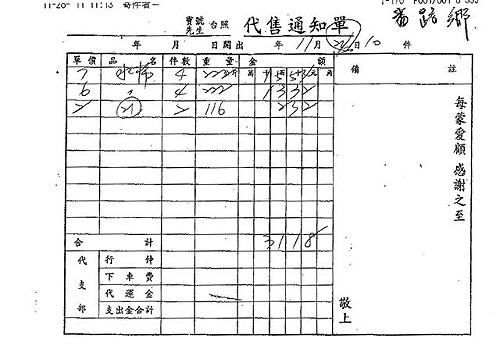 寄件者
番路鄉
寶號
先生 台照 代售通知單
年 月 日開出 年 11月 日 10 件
單價 品名 件數 重量 金額 備註
7 水柿 4 222 1554
6 〃 4 222 1332
2 2 116 232
合計 3118
代支部
行佣
下車費
代運金
支出金合計
每蒙愛顧 感謝之至
敬上